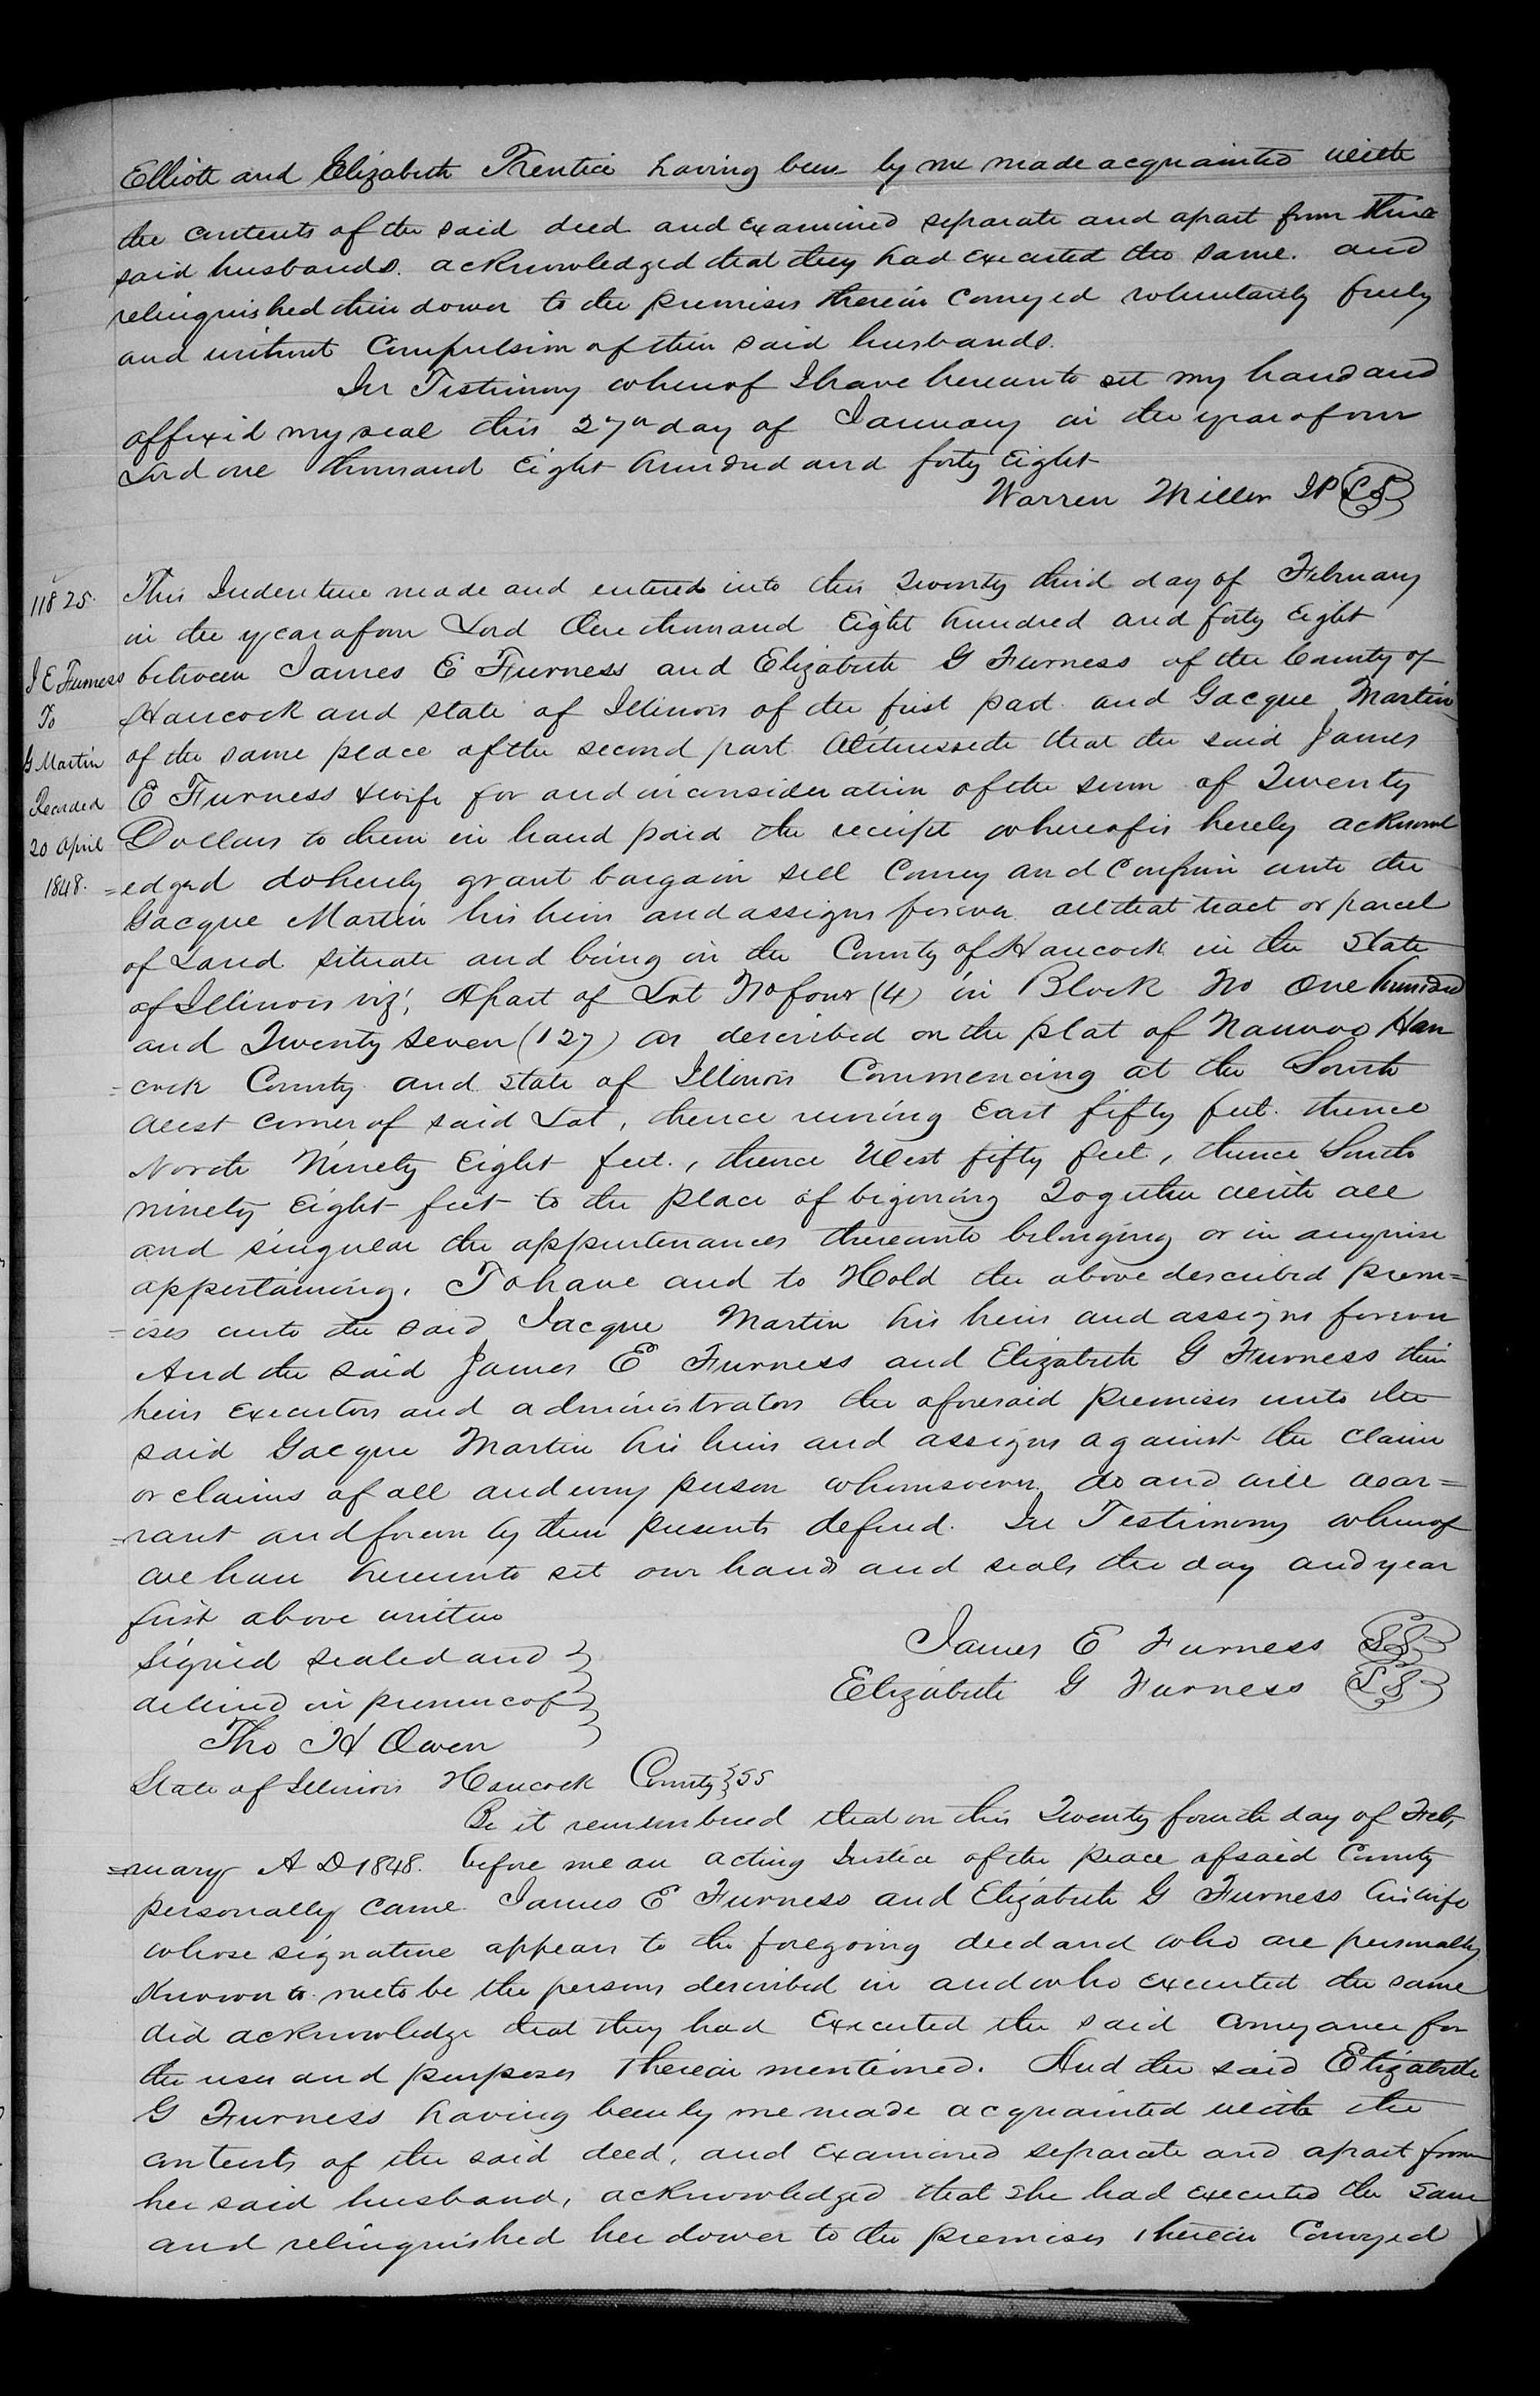 Elliott and Elizabeth Prentice having been by me made acquainted with
the contents of the said deed and examined separate and apart from their
said husbands. acknowledged that they had executed the same. and
relinquished their dower to the premises therein conveyed voluntarily freely
and without Compulsion of their said husbands.
In Testimony whereof I have hereunto set my hand and
affixed my seal this 27th day of January in the year of our
Lord one thousand Eight hundred and forty Eight
Warren Miller JP LS
11825.
J E Furness
To
G Martin
Recorded
20 April
1848.
This Indenture made and entered into this Twenty third day of February
in the year of our Lord One thousand Eight hundred and forty Eight
between James E Furness and Elizabeth G Furness of the County of
Hancock and state of Illinois of the first part and Gacque Martin
of the same place of the second part Witnesseth that the said James
E Furness & wife for and in consideration of the sum of Twenty
Dollars to them in hand paid the receipt whereof is hereby acknowl
=edged do hereby grant bargain sell Convey and Confirm unto the
Gacque Martin his heirs and assigns forever all that tract or parcel
of Land situate and being in the County of Hancock in the State
of Illinois viz; A part of Lot No four (4) in Block No One hundred
and Twenty seven (127) as described on the plat of Nauvoo Han
=cock County and State of Illinois Commencing at the South
West corner of said Lot, thence runing East fifty feet. thence
North Ninety Eight feet., thence West fifty feet, thence South
ninety Eight feet to the place of begining Together with all
and singular the appurtenances thereunto belonging or in anywise
appertaining. To have and to Hold the above described prem=
=ises unto the said Jacque Martin his heirs and assigns forever
And the said James E Furness and Elizabeth G Furness their
heirs executors and administrators the aforesaid premises unto the
said Gacque Martin his heirs and assigns against the claim
or claims of all and every person whomsoever do and will war=
=rant and forever by these presents defend. In Testimony whereof
we have hereunto set our hands and seals the day and year
first above written
Signed sealed and
delivered in presence of
Tho H Owen
James E Furness LS
Elizabeth G Furness LS
State of Illinois Hancock County } SS
Be it remembered that on this Twenty fourth day of Feb,
=ruary A D 1848. before me an acting Justice of the peace of said County
personally came James E Furness and Elizabeth G Furness his wife
whose signature appears to the foregoing deed and who are personally
known to me to be the persons described in and who executed the same
did acknowledge that they had Executed the said Conveyance for
the uses and purposes Therein mentioned. And the said Elizabeth
G Furness having been by me made acquainted with the
contents of the said deed, and examined separate and apart from
her said husband, acknowledged that she had executed the same
and relinquished her dower to the premises therein Conveyed